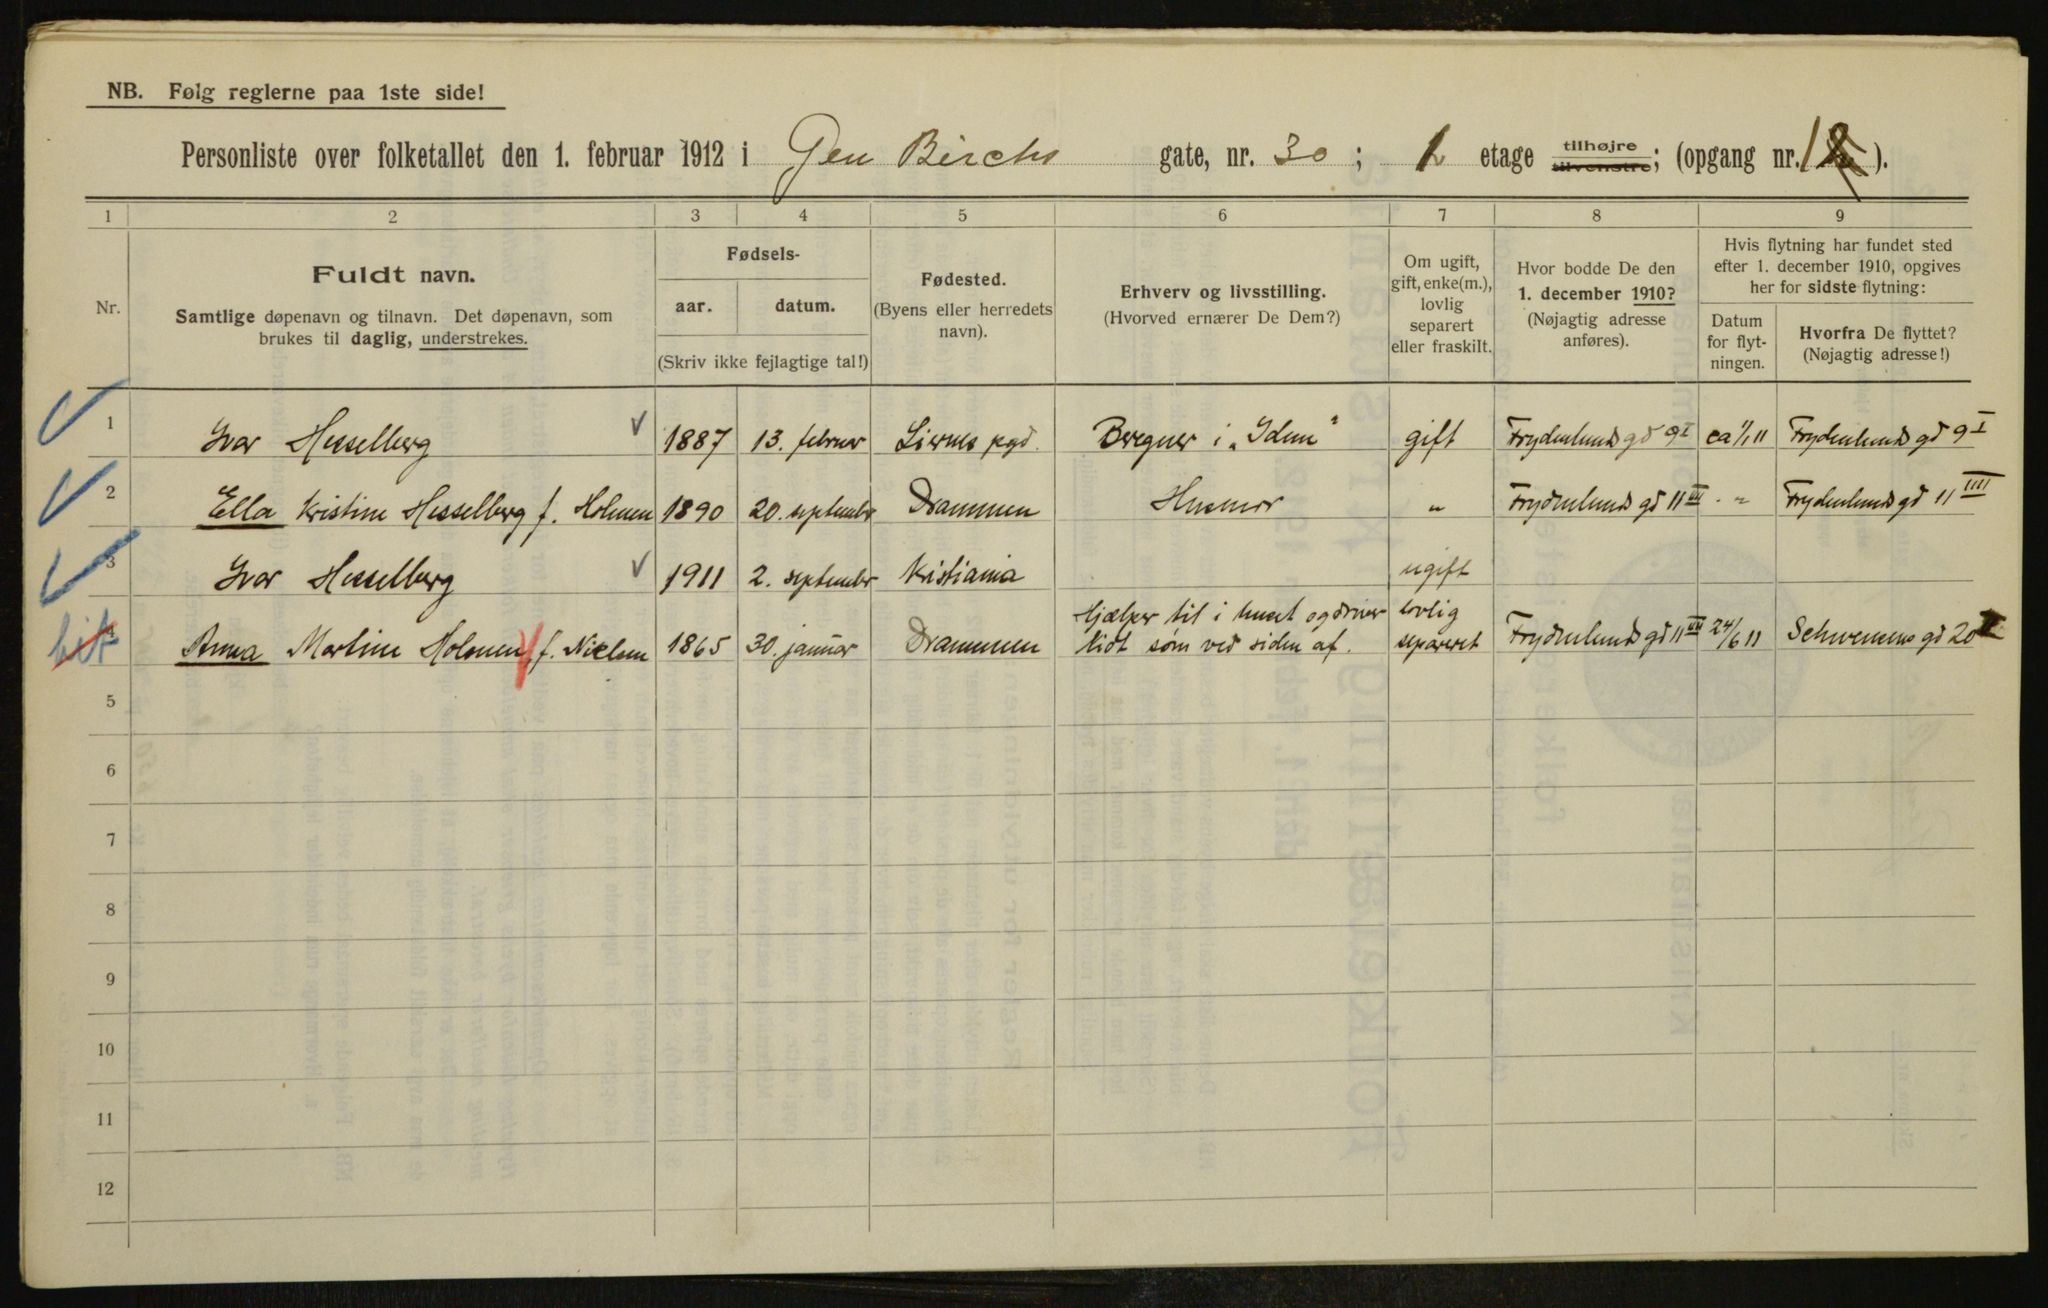 NB. Følg reglerne paa 1ste side!
Personliste over folketallet den 1. februar 1912 i Gen Birchs gate, nr. 30; 1 etage tilhøjre tilvenstre; (opgang nr. 1).
1 2 3 4 5 6 7 8 9
Nr.
Fuldt navn.
Samtlige døpenavn og tilnavn. Det døpenavn, som
brukes til daglig, understrekes.
Fødsels-
aar. datum.
(Skriv ikke fejlagtige tal!)
Fødested.
(Byens eller herredets
navn).
Erhverv og livsstilling.
(Hvorved ernærer De Dem?)
Om ugift,
gift, enke(m.),
lovlig
separert
eller fraskilt.
Hvor bodde De den
1. december 1910?
(Nøjagtig adresse
anføres).
Hvis flytning har fundet sted
efter 1. december 1910, opgives
her for sidste flytning:
Datum
for flyt-
ningen.
Hvorfra De flyttet?
(Nøjagtig adresse!)
1 Ivar Hesselberg 1887 13. februar Liernes pgd. Beregner i „Idun" gift Frydenlunds gd 9 I ca 1/1 11 Frydenlunds gd 9 I
2 Ella Kristine Hesselberg f. Holmen 1890 20. september Drammen Husmor „ Frydenlunds gd 11 III „ Frydenlunds gd 11 IIII
3 Ivar Hesselberg 1911 2. september Kristiania ugift
4 Anna Martine Holmen, f. Nielsen 1865 30. januar Drammen Hjælper til i huset og driver lidt søm ved siden af. lovlig separeret Frydenlunds gd 11 III 24/6 11 Schwensens gd 20
5
6
7
8
9
10
11
12